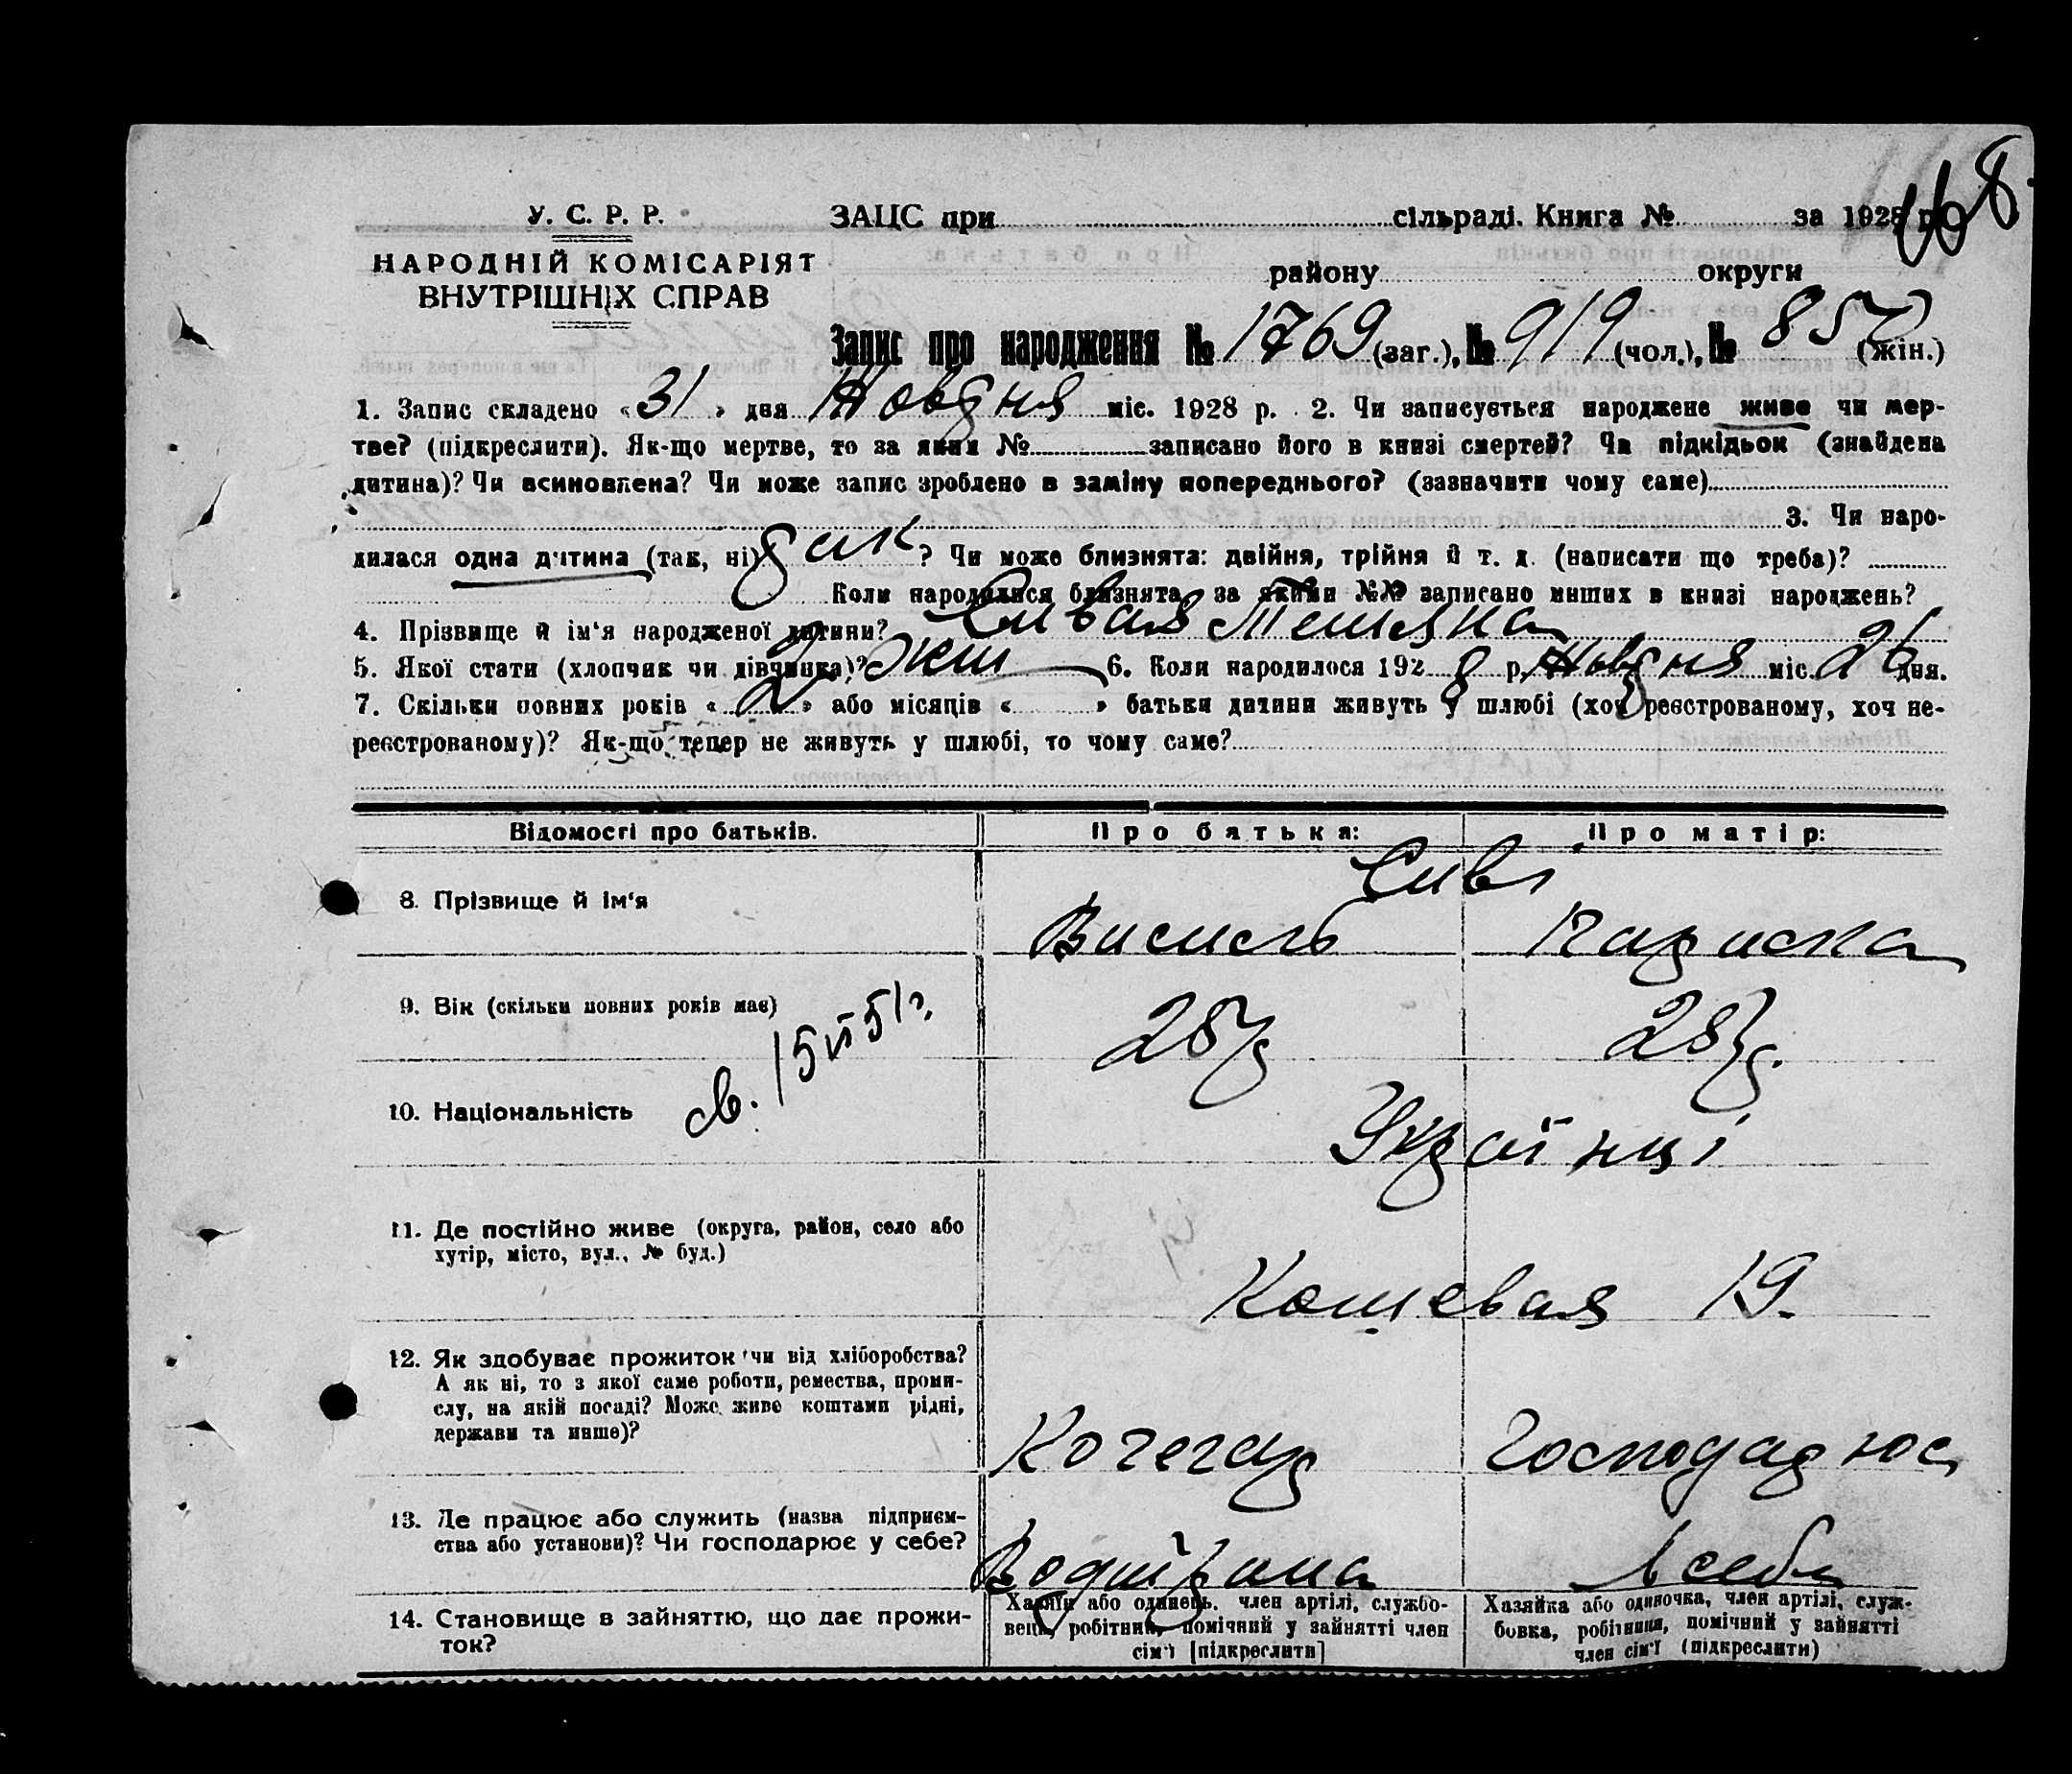 168
У. С. Р. Р. ЗАЦС при сільраді. Книга № за 1928 р.
НАРОДНІЙ КОМІСАРІЯТ
ВНУТРІШНІХ СПРАВ
району округи
Запис про народження № 1769 (заг.), № 919 (чол.), № 850 (жін.)
1. Запис складено «31» дня Жовтня міс. 1928 р. 2. Чи записується народжене живе чи мер-
тве? (підкреслити). Як-що мертве, то за яким № записано його в книзі смертей? Чи підкідьок (знайдена
дитина)? Чи всиновлена? Чи може запис зроблено в заміну попереднього? (зазначити чому саме)
3. Чи наро-
дилася одна дитина (так, ні) так? Чи може близнята: двійня, трійня й т. д. (написати що треба)?
Коли народилися близнята, за якими №№ записано инших в книзі народжень?
4. Прізвище й ім'я народженої дитини? Сивая Тетяна
5. Якої стати (хлопчик чи дівчинка)? жін 6. Коли народилося 1928 р. Жовтня міс. 26 дня.
7. Скільки повних років «2» або місяців « » батьки дитини живуть у шлюбі (хоч реєстрованому, хоч не-
реєстрованому)? Як-що тепер не живуть у шлюбі, то чому саме?
Відомості про батьків. Про батька: Про матір:
Сиві
8. Прізвище й ім'я Василь Мариска
9. Вік (скільки повних років має) 28 р 28 р.
св. 15 VI 51 г.
10. Національність Українці
11. Де постійно живе (округа, район, село або
хутір, місто, вул., № буд.)
Кошевая 19.
12. Як здобуває прожиток чи від хліборобства?
А як ні, то з якої саме роботи, ремества, проми-
слу, на якій посаді? Може живе коштами рідні,
держави та инше)?
Кочегар
13. Де працює або служить (назва підприєм-
ства або установи)? Чи господарює у себе?
в себе
14. Становище в зайняттю, що дає прожи-
ток?
Хазяїн або одинець, член артілі, службо-
вець, робітник, помічний у зайнятті член
сім'ї [підкреслити]
Хазяйка або одиночка, член артілі, служ-
бовка, робітниця, помічний у зайнятті
член сім'ї (підкреслити)